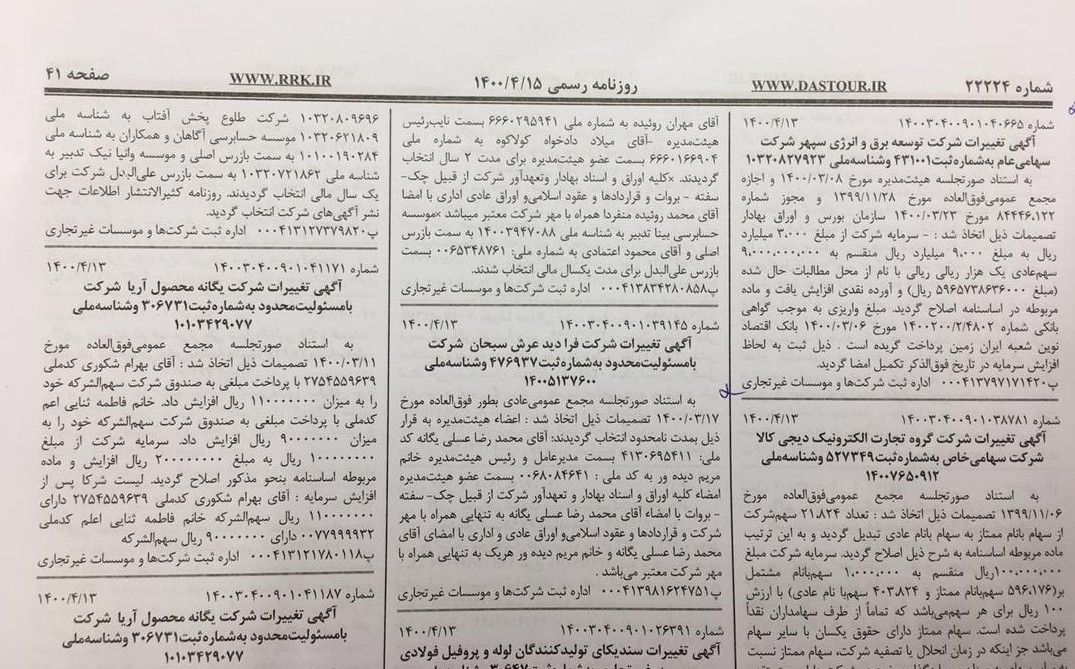 شماره ۲۲۲۲۴
WWW.DASTOUR.IR
روزنامه رسمی ۱۴۰۰/۴/۱۵
WWW.RRK.IR
صفحه ۴۱
شماره ۱۴۰۰۳۰۴۰۰۹۰۱۰۴۰۶۶۵ ۱۴۰۰/۴/۱۳
آگهی تغییرات شرکت توسعه برق و انرژی سپهر شرکت
سهامی‌عام به‌شماره‌ثبت ۴۳۱۰۰۱ وشناسه‌ملی ۱۰۳۲۰۸۲۷۹۲۳
به استناد صورتجلسه هیئت‌مدیره مورخ ۱۴۰۰/۰۳/۰۸ و اجازه
مجمع عمومی‌فوق‌العاده مورخ ۱۳۹۹/۱۱/۲۸ و مجوز شماره
۸۴۴۴۶،۱۲۲ مورخ ۱۴۰۰/۰۳/۲۳ سازمان بورس و اوراق بهادار
تصمیمات ذیل اتخاذ شد : - سرمایه شرکت از مبلغ ۳،۰۰۰ میلیارد
ریال به مبلغ ۹،۰۰۰ میلیارد ریال منقسم به ۹،۰۰۰،۰۰۰،۰۰۰
سهم‌عادی یک هزار ریالی ریالی با نام از محل مطالبات حال شده
(مبلغ ۵۹۶۵۷۳۸۶۳۶۰۰۰ ریال) و آورده نقدی افزایش یافت و ماده
مربوطه در اساسنامه اصلاح گردید. مبلغ واریزی به موجب گواهی
بانکی شماره ۱۴۰۰۲۰۰/۲/۴۸۰۲ مورخ ۱۴۰۰/۰۳/۰۶ بانک اقتصاد
نوین شعبه ایران زمین پرداخت گریده است . ذیل ثبت به لحاظ
افزایش سرمایه در تاریخ فوق‌الذکر تکمیل امضا گردید.
پ۰۰۰۴۱۳۷۹۷۱۷۱۴۲۰ اداره ثبت شرکت‌ها و موسسات غیرتجاری
شماره ۱۴۰۰۳۰۴۰۰۹۰۱۰۳۸۷۸۱ ۱۴۰۰/۴/۱۳
آگهی تغییرات شرکت گروه تجارت الکترونیک دیجی کالا
شرکت سهامی‌خاص به‌شماره‌ثبت ۵۲۷۳۴۹ وشناسه‌ملی
۱۴۰۰۷۶۵۰۹۱۲
به استناد صورتجلسه مجمع عمومی‌فوق‌العاده مورخ
۱۳۹۹/۱۱/۰۶ تصمیمات ذیل اتخاذ شد : تعداد ۲۱،۸۲۴ سهم‌شرکت
از سهام بانام ممتاز به سهام بانام عادی تبدیل گردید و به این ترتیب
ماده مربوطه اساسنامه به شرح ذیل اصلاح گردید. سرمایه شرکت مبلغ
۱۰۰،۰۰۰،۰۰۰ریال منقسم به ۱،۰۰۰،۰۰۰ سهم‌بانام مشتمل
بر(۵۹۶،۱۷۶ سهم‌بانام ممتاز و ۴۰۳،۸۲۴ سهم‌با نام عادی) با ارزش
۱۰۰ ریال برای هر سهم‌می‌باشد که تماماً از طرف سهامداران نقداً
پرداخت شده است. سهام ممتاز دارای حقوق یکسان با سایر سهام
می‌باشد جز اینکه در زمان انحلال یا تصفیه شرکت، سهام ممتاز نسبت
آقای مهران روئیده به شماره ملی ۶۶۶۰۲۹۵۹۴۱ بسمت نایب‌رئیس
هیئت‌مدیره -آقای میلاد دادخواه کولاکوه به شماره ملی
۶۶۶۰۱۶۶۹۰۴ بسمت عضو هیئت‌مدیره برای مدت ۲ سال انتخاب
گردیدند. ×کلیه اوراق و اسناد بهادار وتعهدآور شرکت از قبیل چک-
سفته - بروات و قراردادها و عقود اسلامی‌و اوراق عادی اداری با امضا
آقای محمد روئیده منفردا همراه با مهر شرکت معتبر میباشد ×موسسه
حسابرسی بینا تدبیر به شناسه ملی ۱۴۰۰۳۹۴۷۰۸۸ به سمت بازرس
اصلی و آقای محمود اعتمادی به شماره ملی: ۰۰۶۵۳۴۸۷۶۱ بسمت
بازرس علی‌البدل برای مدت یکسال مالی انتخاب شدند.
پ۰۰۰۴۱۳۸۳۴۲۸۰۸۵۸ اداره ثبت شرکت‌ها و موسسات غیرتجاری
شماره ۱۴۰۰۳۰۴۰۰۹۰۱۰۳۹۱۴۵ ۱۴۰۰/۴/۱۳
آگهی تغییرات شرکت فرا دید عرش سبحان شرکت
بامسئولیت‌محدود به‌شماره‌ثبت ۴۷۶۹۳۷ وشناسه‌ملی
۱۴۰۰۵۱۳۷۶۰۰
به استناد صورتجلسه مجمع عمومی‌عادی بطور فوق‌العاده مورخ
۱۴۰۰/۰۳/۱۷ تصمیمات ذیل اتخاذ شد : اعضاء هیئت‌مدیره به قرار
ذیل بمدت نامحدود انتخاب گردیدند: آقای محمد رضا عسلی یگانه کد
ملی: ۴۱۳۰۶۹۵۴۱۱ بسمت مدیرعامل و رئیس هیئت‌مدیره خانم
مریم دیده ور به کد ملی : ۰۰۶۸۰۸۴۶۴۱ بسمت عضو هیئت‌مدیره
امضاء کلیه اوراق و اسناد بهادار و تعهدآور شرکت از قبیل چک- سفته
- بروات با امضاء آقای محمد رضا عسلی یگانه به تنهایی همراه با مهر
شرکت و قراردادها و عقود اسلامی‌و اوراق عادی و اداری با امضای آقای
محمد رضا عسلی یگانه و خانم مریم دیده ور هریک به تنهایی همراه با
مهر شرکت معتبر می‌باشد .
پ۰۰۰۴۱۳۹۸۱۶۲۴۷۵۱ اداره ثبت شرکت‌ها و موسسات غیرتجاری
شماره ۱۴۰۰۳۰۴۰۰۹۰۱۰۲۶۳۹۱ ۱۴۰۰/۴/۱۳
آگهی تغییرات سندیکای تولیدکنندگان لوله و پروفیل فولادی
۱۰۳۲۰۸۰۹۶۹۶ شرکت طلوع پخش آفتاب به شناسه ملی
۱۰۳۲۰۶۲۱۸۰۹ موسسه حسابرسی آگاهان و همکاران به شناسه ملی
۱۰۱۰۰۱۹۰۲۸۴ به سمت بازرس اصلی و موسسه وانیا نیک تدبیر به
شناسه ملی ۱۰۳۲۰۷۲۱۸۶۲ به سمت بازرس علی‌البدل شرکت برای
یک سال مالی انتخاب گردیدند. روزنامه کثیرالانتشار اطلاعات جهت
نشر آگهی‌های شرکت انتخاب گردید.
پ۰۰۰۴۱۳۱۲۷۳۷۹۸۲۰ اداره ثبت شرکت‌ها و موسسات غیرتجاری
شماره ۱۴۰۰۳۰۴۰۰۹۰۱۰۴۱۱۷۱ ۱۴۰۰/۴/۱۳
آگهی تغییرات شرکت یگانه محصول آریا شرکت
بامسئولیت‌محدود به‌شماره‌ثبت ۳۰۶۷۳۱ وشناسه‌ملی
۱۰۱۰۳۴۲۹۰۷۷
به استناد صورتجلسه مجمع عمومی‌فوق‌العاده مورخ
۱۴۰۰/۰۳/۱۱ تصمیمات ذیل اتخاذ شد : آقای بهرام شکوری کدملی
۲۷۵۴۵۵۹۶۳۹ با پرداخت مبلغی به صندوق شرکت سهم‌الشرکه خود
را به میزان ۱۱۰۰۰۰۰۰۰ ریال افزایش داد. خانم فاطمه ثنایی اعم
کدملی با پرداخت مبلغی به صندوق شرکت سهم‌الشرکه خود را به
میزان ۹۰۰۰۰۰۰۰ ریال افزایش داد. سرمایه شرکت از مبلغ
۱۰۰۰۰۰۰۰ ریال به مبلغ ۲۰۰۰۰۰۰۰۰ ریال افزایش و ماده
مربوطه اساسنامه بنحو مذکور اصلاح گردید. لیست شرکا پس از
افزایش سرمایه : آقای بهرام شکوری کدملی ۲۷۵۴۵۵۹۶۳۹ دارای
۱۱۰۰۰۰۰۰۰ ریال سهم‌الشرکه خانم فاطمه ثنایی اعلم کدملی
۰۰۷۷۹۹۹۹۳۲ دارای ۹۰۰۰۰۰۰۰ ریال سهم‌الشرکه
پ۰۰۰۴۱۳۱۲۱۷۸۰۱۱۸ اداره ثبت شرکت‌ها و موسسات غیرتجاری
شماره ۱۴۰۰۳۰۴۰۰۹۰۱۰۴۱۱۸۷ ۱۴۰۰/۴/۱۳
آگهی تغییرات شرکت یگانه محصول آریا شرکت
بامسئولیت‌محدود به‌شماره‌ثبت ۳۰۶۷۳۱ وشناسه‌ملی
۱۰۱۰۳۴۲۹۰۷۷